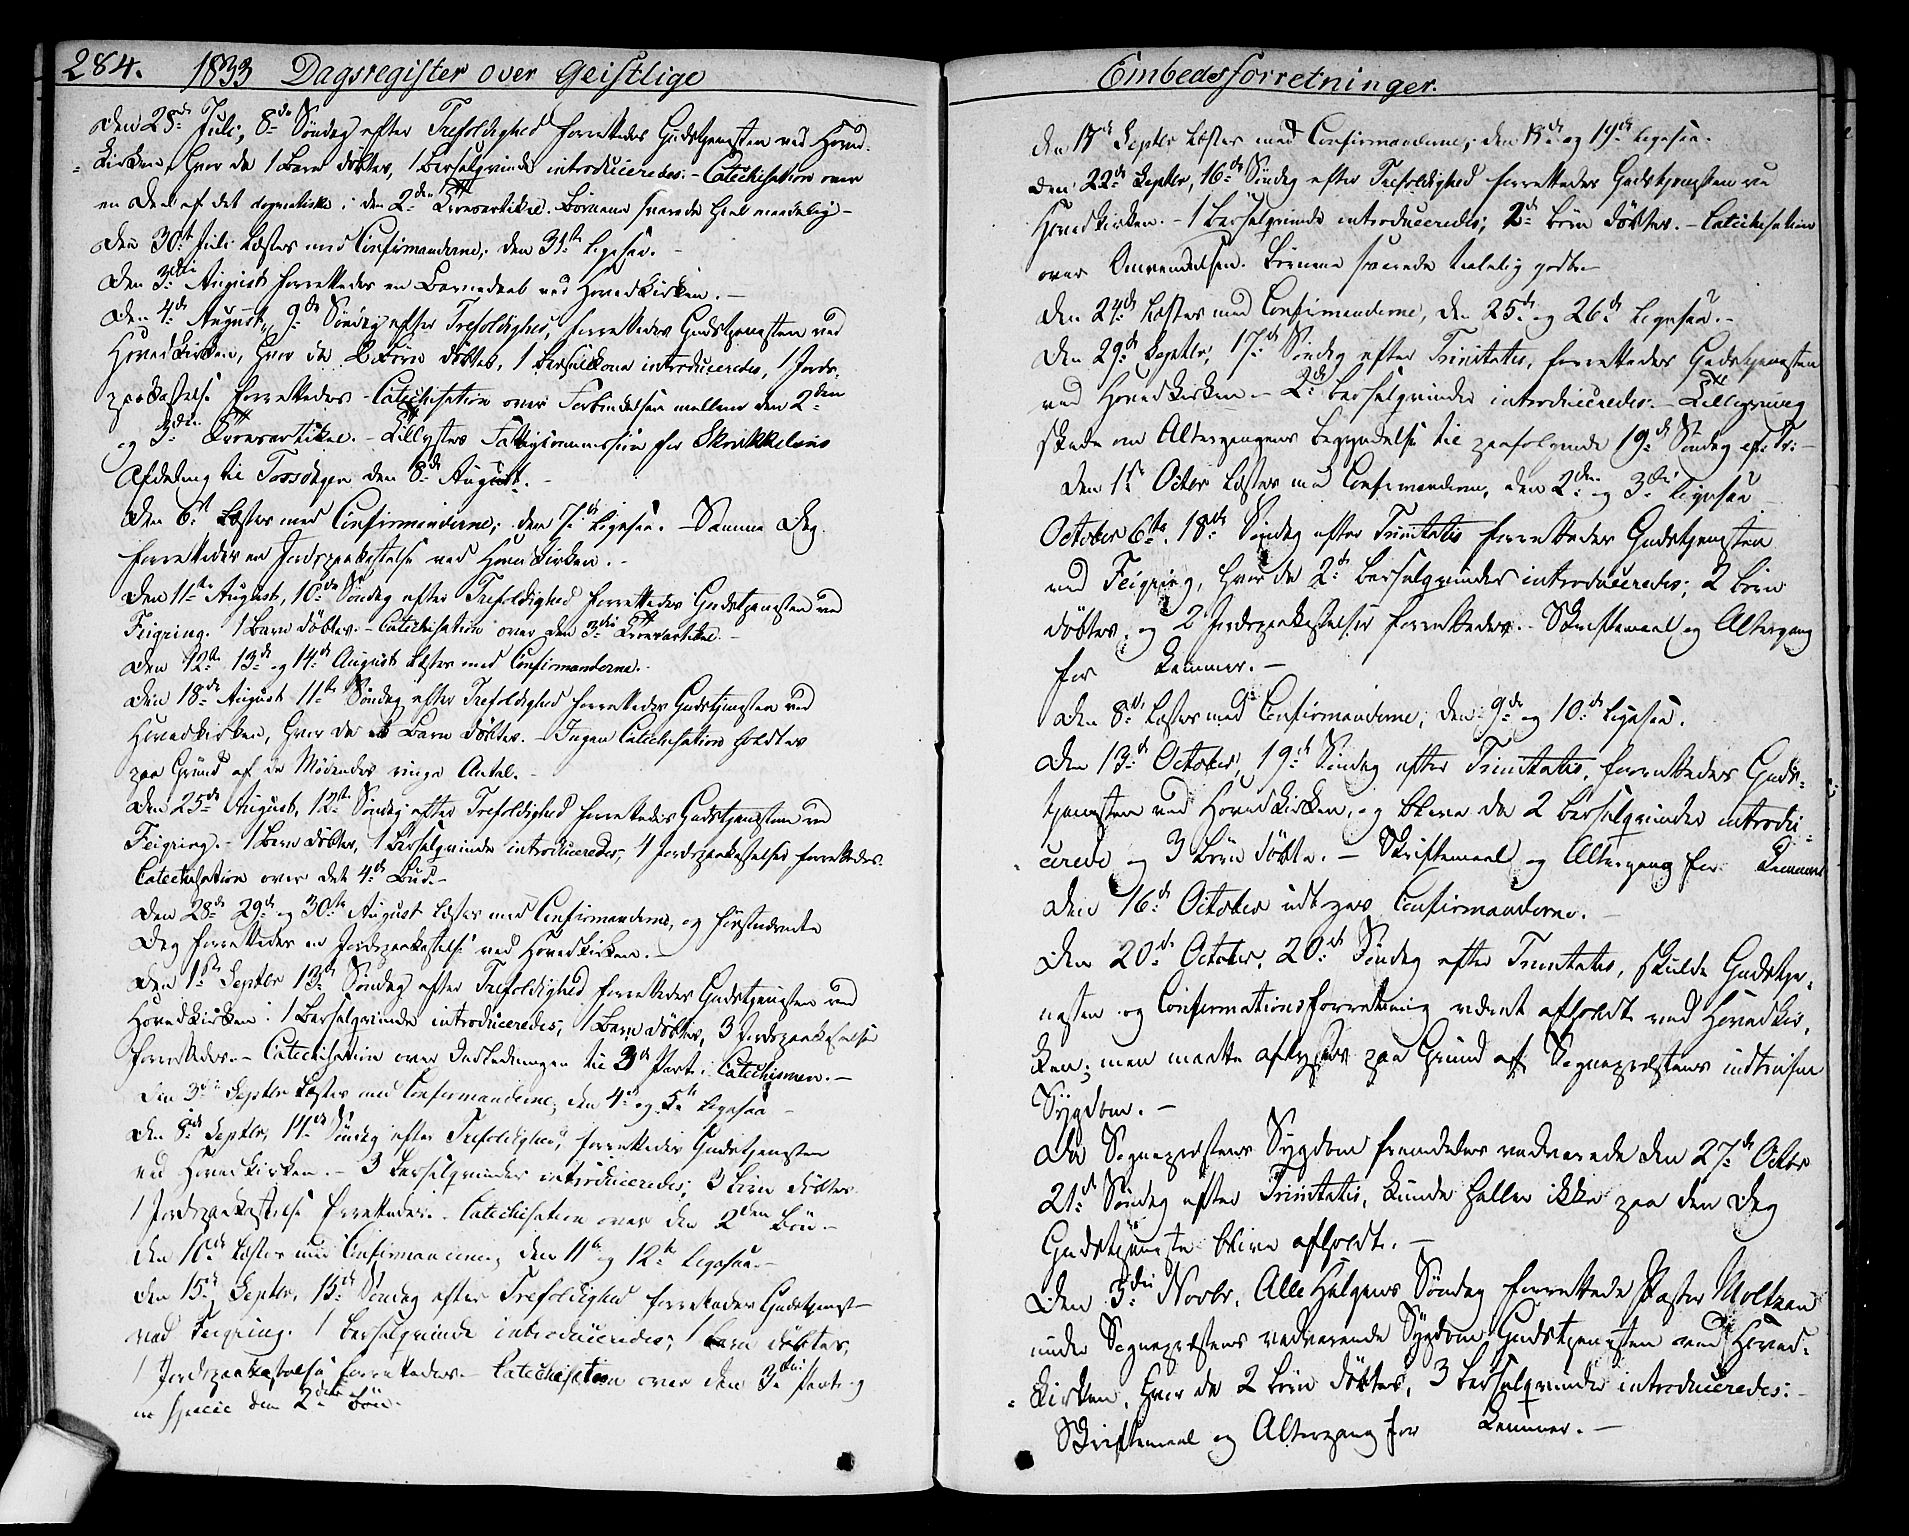 284. 1833 Dagsregister over Geistlige
Den 28de Juli, 8de Søndag efter Trefoldighed forrettedes Gudstjenesten ved Hoved-
kirken, hvor da 1 Barn døbtes, 1 Barselqvinde introduceredes. - Catechisation over
en Deel af det dogmatiske i den 2den Troesartikel. Børnene svarede heel maadelig -
Den 30te Juli læstes med Confirmanderne; den 31te ligesaa. -
Den 3die August forrettedes en Barnedaab ved Hovedkirken. -
Den 4de August, 9de Søndag efter Trefoldighed, forrettedes Gudstjenesten ved
Hovedkirken, hvor da Børn døbtes, 1 Barselkone introduceredes, 1 Jords-
paakastelse forrettedes - Catechisation over Forbindelsen mellem den 2den
og 3die Troesartikel. - Tillystes Fattigcommission for Skrukkeliens
Afdeling til Torsdagen den 8de August. -
Den 6te læstes med Confirmanderne; den 7de ligesaa. - Samme Dag
forrettedes en Jordspaakastelse ved Hovedkirken. -
Den 11te August, 10de Søndag efter Trefoldighed forrettedes Gudstjenesten ved
Feigring. 1 Barn døbtes. - Catechisation over den 3die Troesartikel. -
Den 12te 13de og 14de August læstes med Confirmanderne. -
Den 18de August 11te Søndag efter Trefoldighed forrettedes Gudstjenesten ved
Hovedkirken, hvor da Barn døbtes. - Ingen Catechisation holdtes
paa Grund af de Mødendes ringe Antal. -
Den 25de August, 12te Søndag efter Trefoldighed forrettedes Gudstjenesten ved
Feigring. - 1 Barn døbtes, 1 Barselqvinde introduceredes, 4 Jordspaakastelser forrettedes.
Catechisation over det 4de Bud. -
Den 28de 29de og 30te August læstes med Confirmanderne, og førstnævnte
Dag forrettedes en Jordspaakastelse ved Hovedkirken. -
Den 1ste Septbr 13de Søndag efter Trefoldighed forrettedes Gudstjenesten ved
Hovedkirken. 1 Barselqvinde introduceredes, 1 Barn døbtes, 3 Jordspaakastelser
forrettedes. - Catechisation over Indledningen til 3die Part i Catechismen. -
Den 3die Septbr læstes med Confirmanderne; den 4de og 5te ligesaa -
Den 8de Septbr, 14de Søndag efter Trefoldighed, forrettedes Gudstjenesten
ved Hovedkirken. - 3 Barselqvinder introduceredes; 3 Børn døbtes
1 Jordspaakastelse forrettedes. - Catechisation over den 2den Bøn -
Den 10de læstes med Confirmanderne, den 11te og 12te ligesaa. -
Den 15de Septbr. 15de Søndag efter Trefoldighed forrettedes Gudstjenest
ved Feigring. 1 Barselqvinde introduceredes; 1 Barn døbtes,
1 Jordspaakastelse forrettedes - Catechisation over den 3die Part og
in specie den 2den Bøn. -
Embedsforretninger.
den 17de Septbr læstes med Confirmanderne; den 18de og 19de ligesaa.
Den 22de Septbr, 16de Søndag efter Trefoldighed forrettedes Gudstjenesten ved
Hovedkirken. - 1 Barselqvinde introduceredes; 2de Børn døbtes. - Catechisation
over Omvendelsen. Børnene svarede taalelig godt. -
Den 24de læstes med Confirmanderne, den 25de og 26de ligesaa. -
Den 29de Septbr, 17de Søndag efter Trinitatis, forrettedes Gudstjenesten
ved Hovedkirken - 2de Barselqvinder introduceredes. - Tillysning
skede om Altergangens Begyndelse til paafølgende 19de Søndag ef: Tr: -
Den 1ste Octbr læstes med Confirmanderne, den 2den og 3die ligesaa -
October 6te. 18de Søndag efter Trinitatis forrettedes Gudstjenesten
ved Feigring, hvor da 2de Barselqvinder introduceredes; 2 Børn
døbtes, og 2 Jordspaakastelser forrettedes. - Skriftemaal og Altergang
for Lemmer. -
Den 8de læstes med Confirmanderne; den 9de og 10de ligesaa.
Den 13de October, 19de Søndag efter Trinitatis, forrettedes Guds-
tjenesten ved Hovedkirken, og bleve da 2 Barselqvinder introdu-
cerede og 3 Børn døbte. - Skriftemaal og Altergang for Lemmer
Den 16de October udtoges Confirmanderne. -
Den 20de October, 20de Søndag efter Trinitatis, skulde Gudstje-
nesten og Confirmationsforretning været afholdt ved Hovedkir-
ken; men maatte aflyses paa Grund af Sognepræstens indtrufne
Sygdom. -
Da Sognepræstens Sygdom fremdeles vedvarede den 27de Octbr
21de Søndag efter Trinitatis, kunde heller ikke paa den Dag
Gudstjeneste blive afholdt. -
Den 3die Novbr, Alle Helgens Søndag forrettede Pastor Moltzau
under Sognepræstens vedvarende Sygdom Gudstjenesten ved Hoved-
kirken, hvor da 2 Børn døbtes, 3 Barselqvinder introduceredes. -
Skriftemaal og Altergang for Lemmer. -